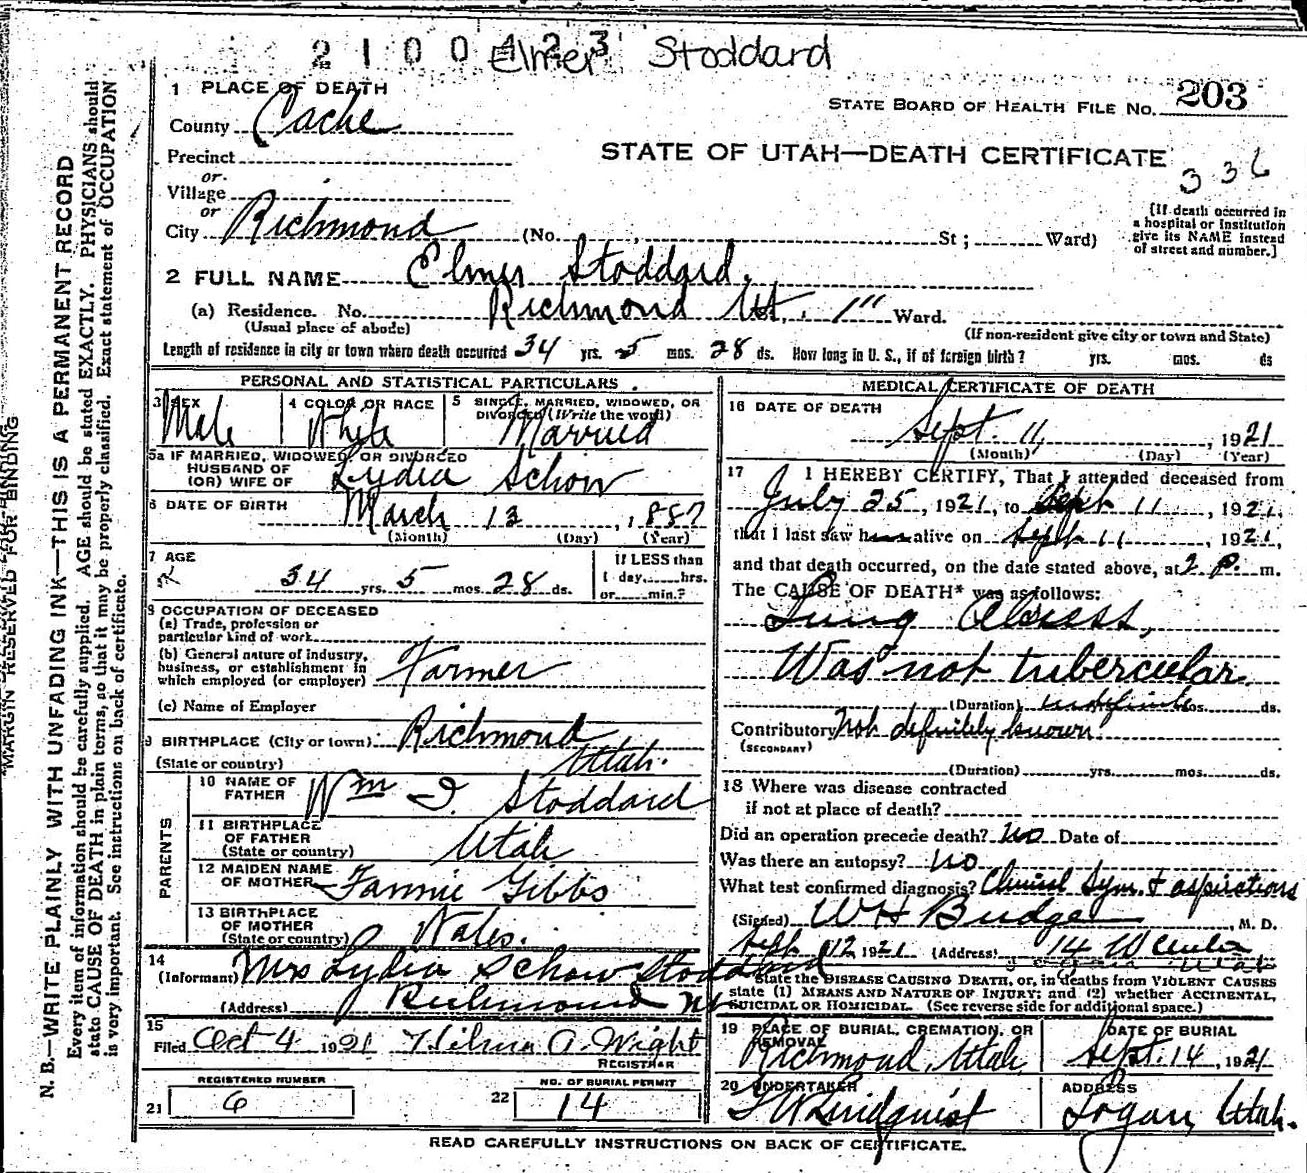 2 1 0 0 4 2 3
Elmer Stoddard
1 PLACE OF DEATH
STATE BOARD OF HEALTH FILE NO. 203
County Cache
Precinct
STATE OF UTAH—DEATH CERTIFICATE
336
or
Village
or
City Richmond (No. St; Ward)
[If death occurred in a hospital or institution give its NAME instead of street and number.]
2 FULL NAME Elmer Stoddard.
(a) Residence. No. Richmond Ut. 1" Ward.
(Usual place of abode)
(If non-resident give city or town and State)
Length of residence in city or town where death occurred 34 yrs. 5 mos. 28 ds. How long in U. S., if of foreign birth? yrs. mos. ds
PERSONAL AND STATISTICAL PARTICULARS
3 SEX
Male
4 COLOR OR RACE
White
5 SINGLE, MARRIED, WIDOWED, OR
DIVORCED (Write the word)
Married
5a IF MARRIED, WIDOWED, OR DIVORCED
HUSBAND OF
(OR) WIFE OF Lydia Schow
6 DATE OF BIRTH March 13, 1887
(Month) (Day) (Year)
7 AGE
34 yrs. 5 mos. 28 ds.
If LESS than
1 day......hrs.
or......min.?
8 OCCUPATION OF DECEASED
(a) Trade, profession or
particular kind of work
(b) General nature of industry,
business, or establishment in
which employed (or employer) Farmer
(c) Name of Employer
9 BIRTHPLACE (City or town) Richmond
(State or country) Utah.
PARENTS
10 NAME OF
FATHER Wm I. Stoddard
11 BIRTHPLACE
OF FATHER
(State or country) Utah
12 MAIDEN NAME
OF MOTHER Fannie Gibbs
13 BIRTHPLACE
OF MOTHER
(State or country) Wales.
14
(Informant) Mrs Lydia Schow Stoddard
(Address) Richmond
15
Filed Oct 4 1921 Wilma A. Wright
REGISTRAR
REGISTERED NUMBER
21 6
NO. OF BURIAL PERMIT
22 14
MEDICAL CERTIFICATE OF DEATH
16 DATE OF DEATH
Sept. 11, 1921
(Month) (Day) (Year)
17 I HEREBY CERTIFY, That I attended deceased from
July 25, 1921, to Sept 11, 1921,
that I last saw him alive on Sept 11, 1921,
and that death occurred, on the date stated above, at 2 P. m.
The CAUSE OF DEATH* was as follows:
Lung Abcess,
Was not tubercular.
(Duration) indefinite mos. ds.
Contributory Not definitely known
(SECONDARY)
(Duration) yrs. mos. ds.
18 Where was disease contracted
if not at place of death?
Did an operation precede death? No Date of
Was there an autopsy? No
What test confirmed diagnosis? Clinical Sym. & aspirations
(Signed) W H Budge, M. D.
Sept 12 1921 (Address) 14 W Center
State the DISEASE CAUSING DEATH, or, in deaths from VIOLENT CAUSES
state (1) MEANS AND NATURE OF INJURY; and (2) whether ACCIDENTAL,
SUICIDAL OR HOMICIDAL. (See reverse side for additional space.)
19 PLACE OF BURIAL, CREMATION, OR
REMOVAL
Richmond, Utah
DATE OF BURIAL
Sept. 14, 1921
20 UNDERTAKER
Lindquist
ADDRESS
Logan, Utah.
READ CAREFULLY INSTRUCTIONS ON BACK OF CERTIFICATE.
MARGIN RESERVED FOR BINDING
N. B.—WRITE PLAINLY WITH UNFADING INK—THIS IS A PERMANENT RECORD
Every item of information should be carefully supplied. AGE should be stated EXACTLY. PHYSICIANS should
state CAUSE OF DEATH in plain terms, so that it may be properly classified. Exact statement of OCCUPATION
is very important. See instructions on back of certificate.